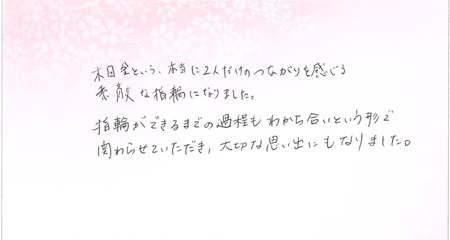 木目金という、本当に2人だけのつながりを感じる
素敵な指輪になりました。
指輪ができるまでの過程もわかち合いという形で
関わらせていただき、大切な思い出にもなりました。